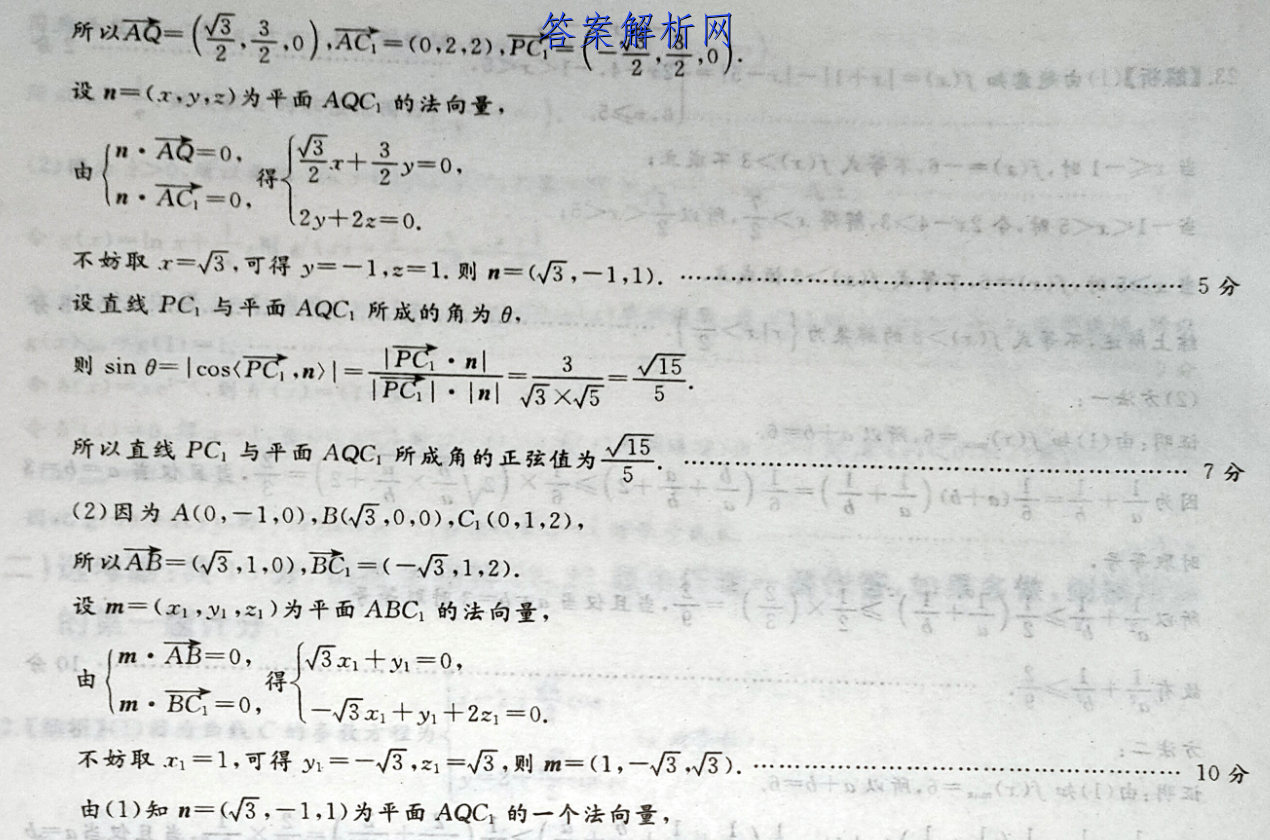 答案解析网
所以AQ=(√3/2,3/2,0),AC₁=(0,2,2),PC₁=(-√3/2,3/2,0).
设 n=(x,y,z)为平面 AQC₁ 的法向量,
由{n·AQ=0, n·AC₁=0, 得{√3/2x+3/2y=0, 2y+2z=0.
不妨取 x=√3,可得 y=-1,z=1.则 n=(√3,-1,1). ………… 5 分
设直线 PC₁ 与平面 AQC₁ 所成的角为 θ,
则 sin θ=|cos⟨PC₁,n⟩|=|PC₁·n|/|PC₁|·|n|=3/√3×√5=√15/5.
所以直线 PC₁ 与平面 AQC₁ 所成角的正弦值为√15/5. ………… 7 分
(2)因为 A(0,-1,0),B(√3,0,0),C₁(0,1,2),
所以AB=(√3,1,0),BC₁=(-√3,1,2).
设 m=(x₁,y₁,z₁)为平面 ABC₁ 的法向量,
由{m·AB=0, m·BC₁=0, 得{√3x₁+y₁=0, -√3x₁+y₁+2z₁=0.
不妨取 x₁=1,可得 y₁=-√3,z₁=√3,则 m=(1,-√3,√3). ………… 10 分
由(1)知 n=(√3,-1,1)为平面 AQC₁ 的一个法向量,